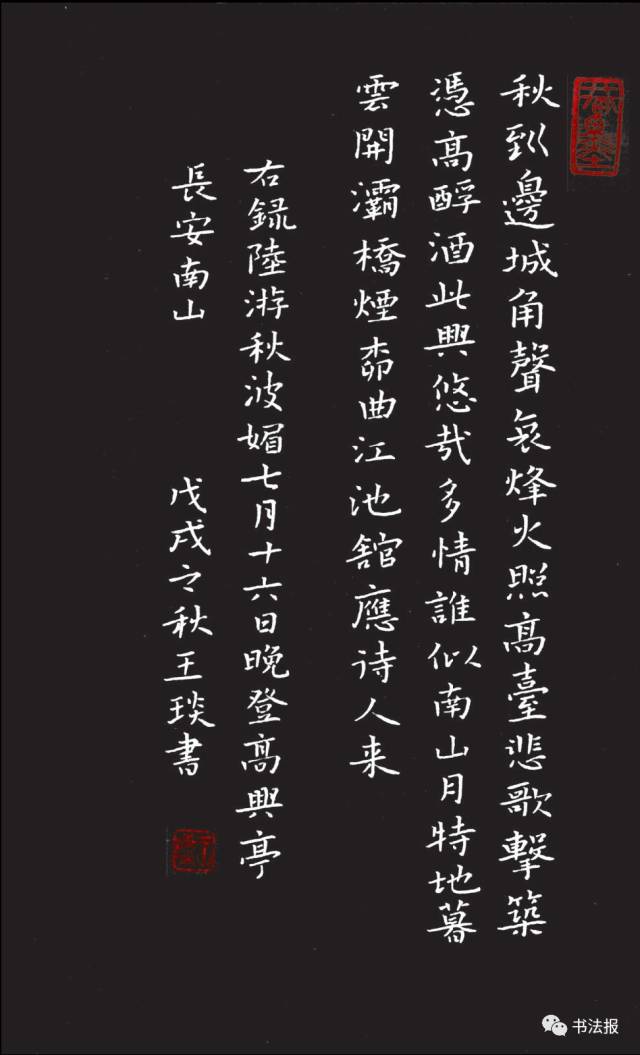 秋到邊城角聲哀烽火照髙臺悲歌擊築
憑髙酹酒此興悠哉多情誰似南山月特地暮
雲開灞橋煙柳曲江池舘應待人来
右録陸游秋波媚七月十六日晚登髙興亭
長安南山 戊戌之秋王琰書
书法报